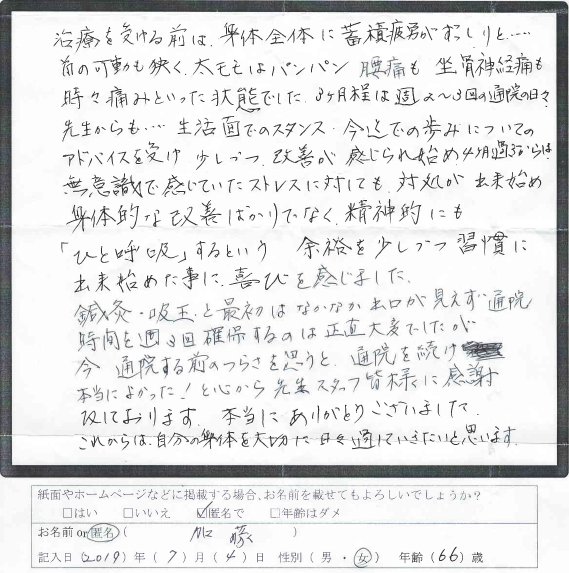 治療を受ける前は、身体全体に蓄積疲労がずっしりと……
首の可動も狭く、太モモはパンパン 腰痛も 坐骨神経痛も
時々痛みといった状態でした。3ヶ月程は週2〜3回の通院の日々
先生からも…生活面でのスタンス・今迄での歩みについての
アドバイスを受け 少しづつ、改善が感じられ始め4ヶ月過ぎからは
無意識で感じていたストレスに対しても、対処が出来始め
身体的な改善ばかりでなく、精神的にも
「ひと呼吸」するという 余裕を少しづつ習慣に
出来始めた事に、喜びを感じました。
鍼灸・吸玉と最初はなかなか出口が見えず通院
時間を週3回確保するのは正直大変でしたが
今 通院する前のつらさを思うと、通院を続け
本当によかった!と心から先生スタッフ皆様に感謝
致しております。本当にありがとうございました。
これからは、自分の身体を大切に日々過していきたいと思います。
紙面やホームページなどに掲載する場合、お名前を載せてもよろしいでしょうか?
□はい □いいえ ☑匿名で □年齢はダメ
お名前or匿名( 藤 )
記入日(2019)年(7)月(4)日 性別(男・女) 年齢(66)歳